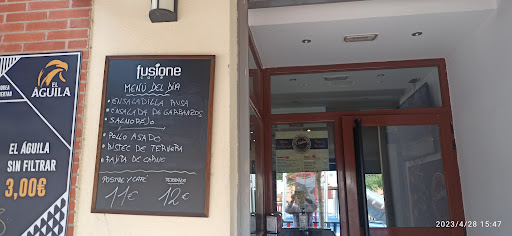 EL
ÁGUILA
EL ÁGUILA
SIN FILTRAR
3,00€
fusione
MENÚ DEL DÍA
• ENSALADILLA RUSA
• ENSALADA DE GARBANZOS
• SALMOREJO
• POLLO ASADO
• BISTEC DE TERNERA
• FAJITA DE CARNE
POSTRE Y CAFÉ
TERRAZA
11€ 12€
2023/4/28 15:47